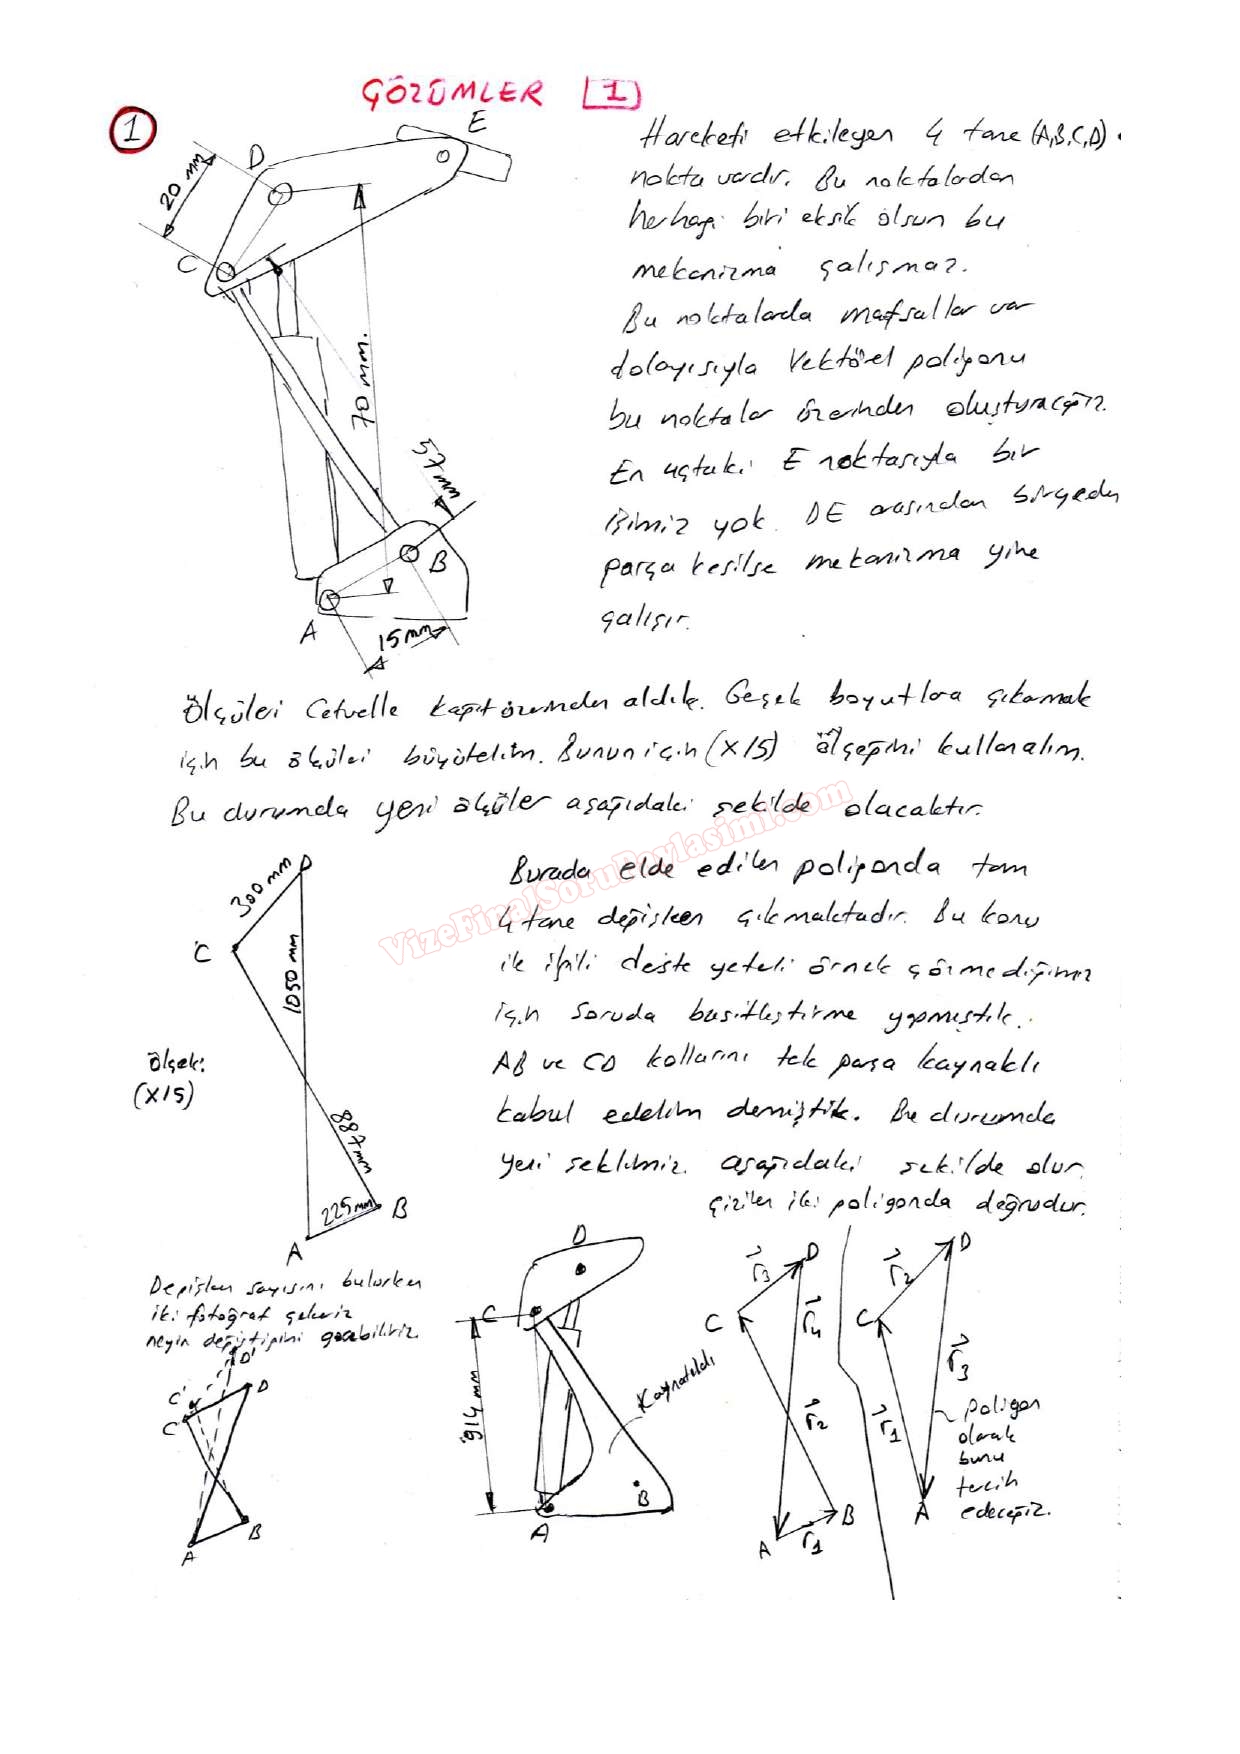 ÇÖZÜMLER 1
1
E
D
20 mm
C
70 mm
57 mm
B
A
15 mm
Hareketi etkileyen 4 tane (A,B,C,D)
nokta vardır. Bu noktalardan
herhagi biri eksik olsun bu
mekanizma çalışmaz.
Bu noktalarda mafsallar var
dolayısıyla Vektörel poligonu
bu noktalar üzerinden oluşturacağız.
En uçtaki E noktasıyla bir
işimiz yok. DE arasından birçeden
parça kesilse mekanizma yine
çalışır.
Ölçüleri Cetvelle kağıt üzerinden aldık. Geçek boyutlara çıkarmak
için bu ölçüleri büyütelim. Bunun için (X15) ölçeğini kullanalım.
Bu durumda yeni ölçüler aşağıdaki şekilde olacaktır.
VizeFinalSoruPaylasimi.com
D
300 mm
C
1050 mm
Ölçek:
(X15)
887 mm
225 mm
B
A
Burada elde edilen poligonda tam
4 tane değişken çıkmaktadır. Bu konu
ile ilgili derste yeterli örnek görmediğimiz
için soruda basitleştirme yapmıştık.
AB ve CD kollarını tek parça kaynaklı
kabul edelim demiştik. Bu durumda
yeni şeklimiz aşağıdaki şekilde olur.
çizilen iki poligonda doğrudur.
Değişken sayısını bulurken
iki fotoğraf çekeriz
neyin değiştiğini görebiliriz.
D'
C'
D
C
B
A
D
C
914 mm
Kaynatıldı
B
A
D
r3
C
r4
r2
B
A
r1
D
r2
C
r3
r1
A
poligon
olarak
bunu
tercih
edeceğiz.